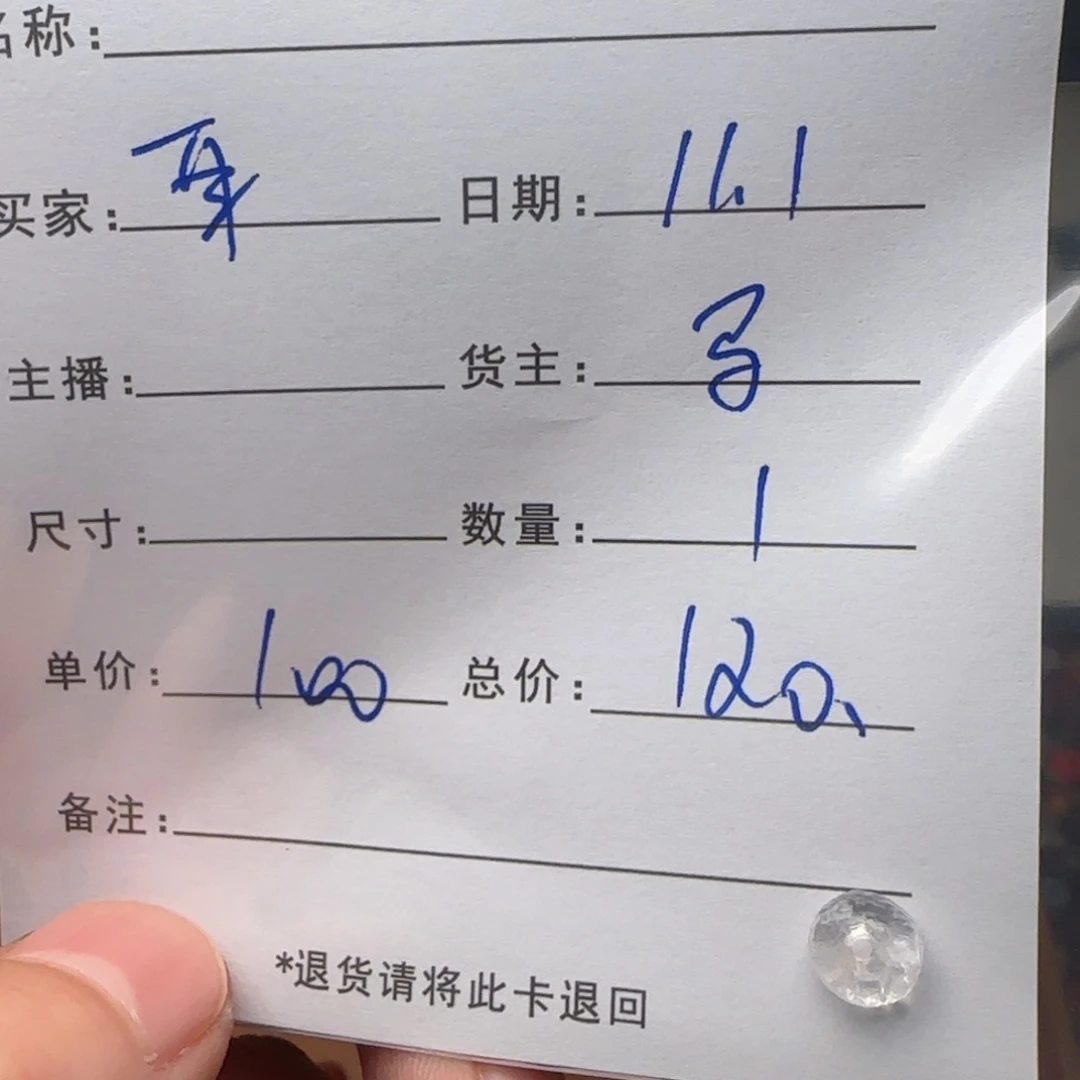 名称:
买家: 日期: 11.1
主播: 货主:
尺寸: 数量: 1
单价: 100 总价: 120、
备注:
*退货请将此卡退回